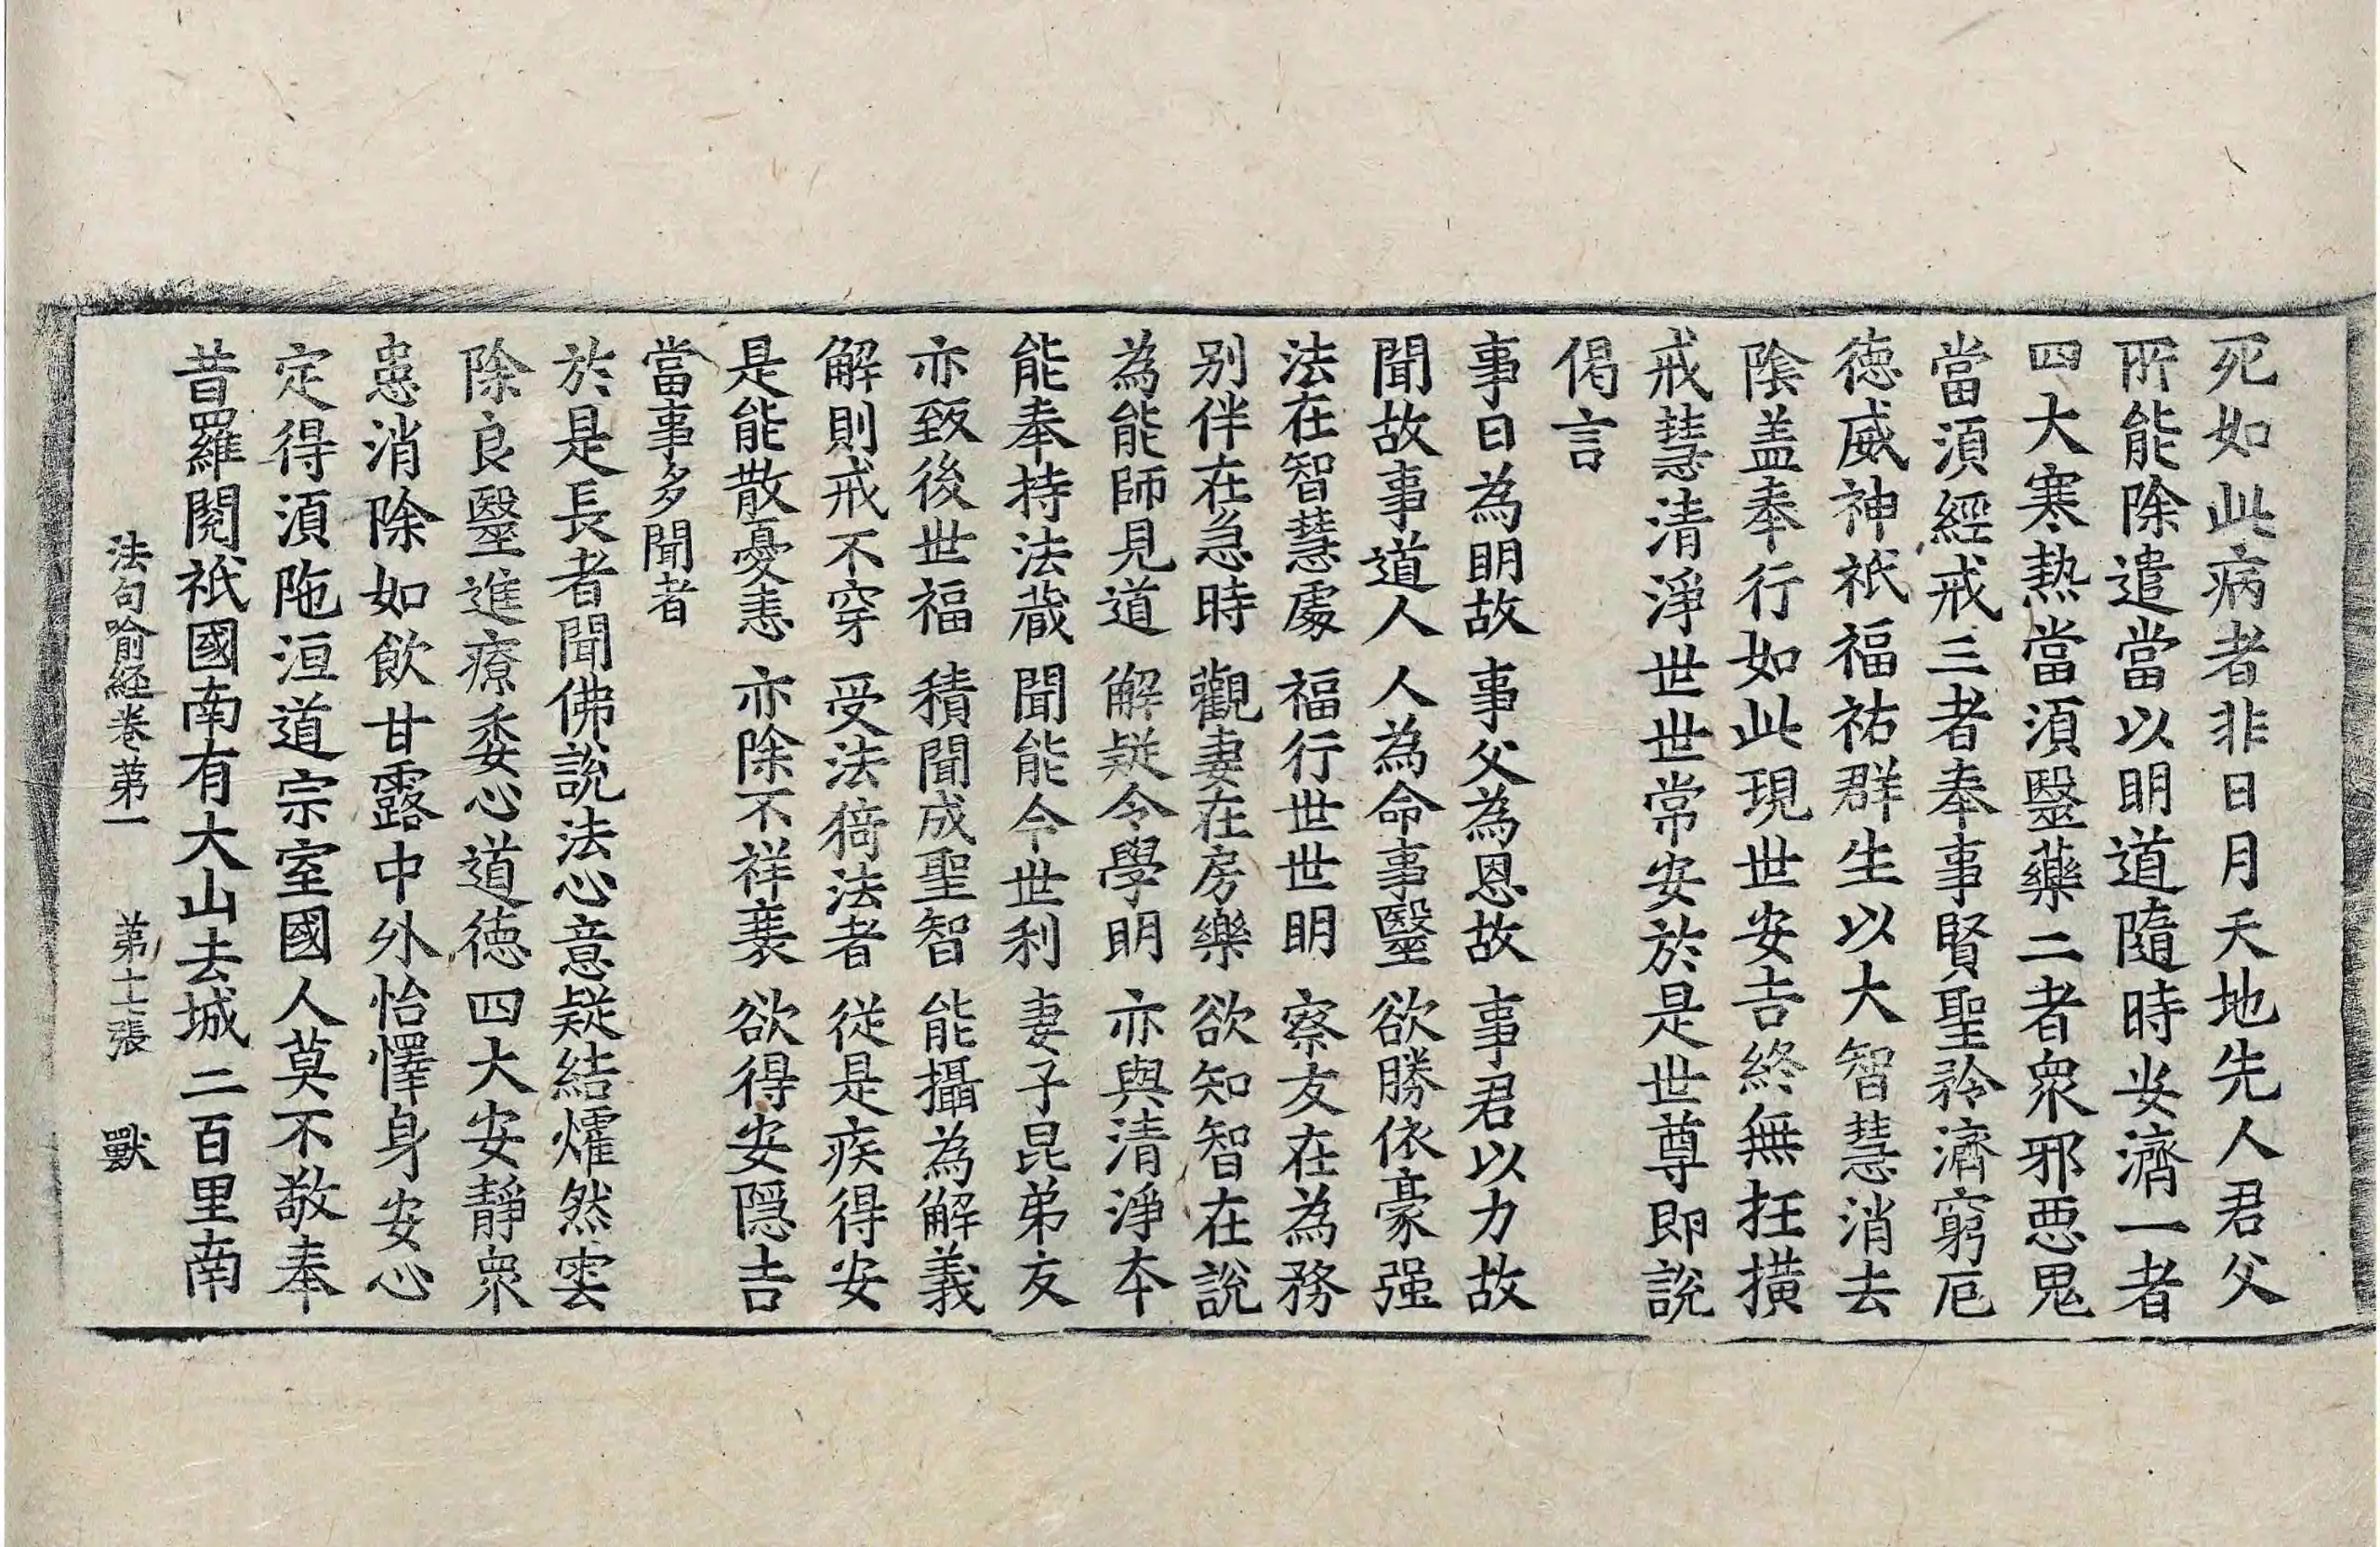 死如此病者非日月天地先人君父
所能除遣當以明道隨時安濟一者
四大寒熱當須醫藥二者衆邪惡鬼
當須經戒三者奉事賢聖矜濟窮厄
德威神祇福祐群生以大智慧消去
陰盖奉行如此現世安吉終無抂撗
戒慧清淨世世常安於是世尊即說
偈言
事日為明故　事父為恩故　事君以力故
聞故事道人　人為命事醫　欲勝依豪强
法在智慧處　福行世世明　察友在為務
别伴在急時　觀妻在房樂　欲知智在說
為能師見道　解疑令學明　亦與清淨本
能奉持法藏　聞能今世利　妻子昆弟友
亦致後世福　積聞成聖智　能攝為解義
解則戒不穿　受法猗法者　從是疾得安
是能散憂恚　亦除不祥衰　欲得安隱吉
當事多聞者
於是長者聞佛說法心意疑結爟然雲
除良醫進療委心道德四大安靜衆
患消除如飲甘露中外怡懌身安心
定得須陁洹道宗室國人莫不敬奉
昔羅閱祇國南有大山去城二百里南
法句喻経卷第一　第十七張　獸